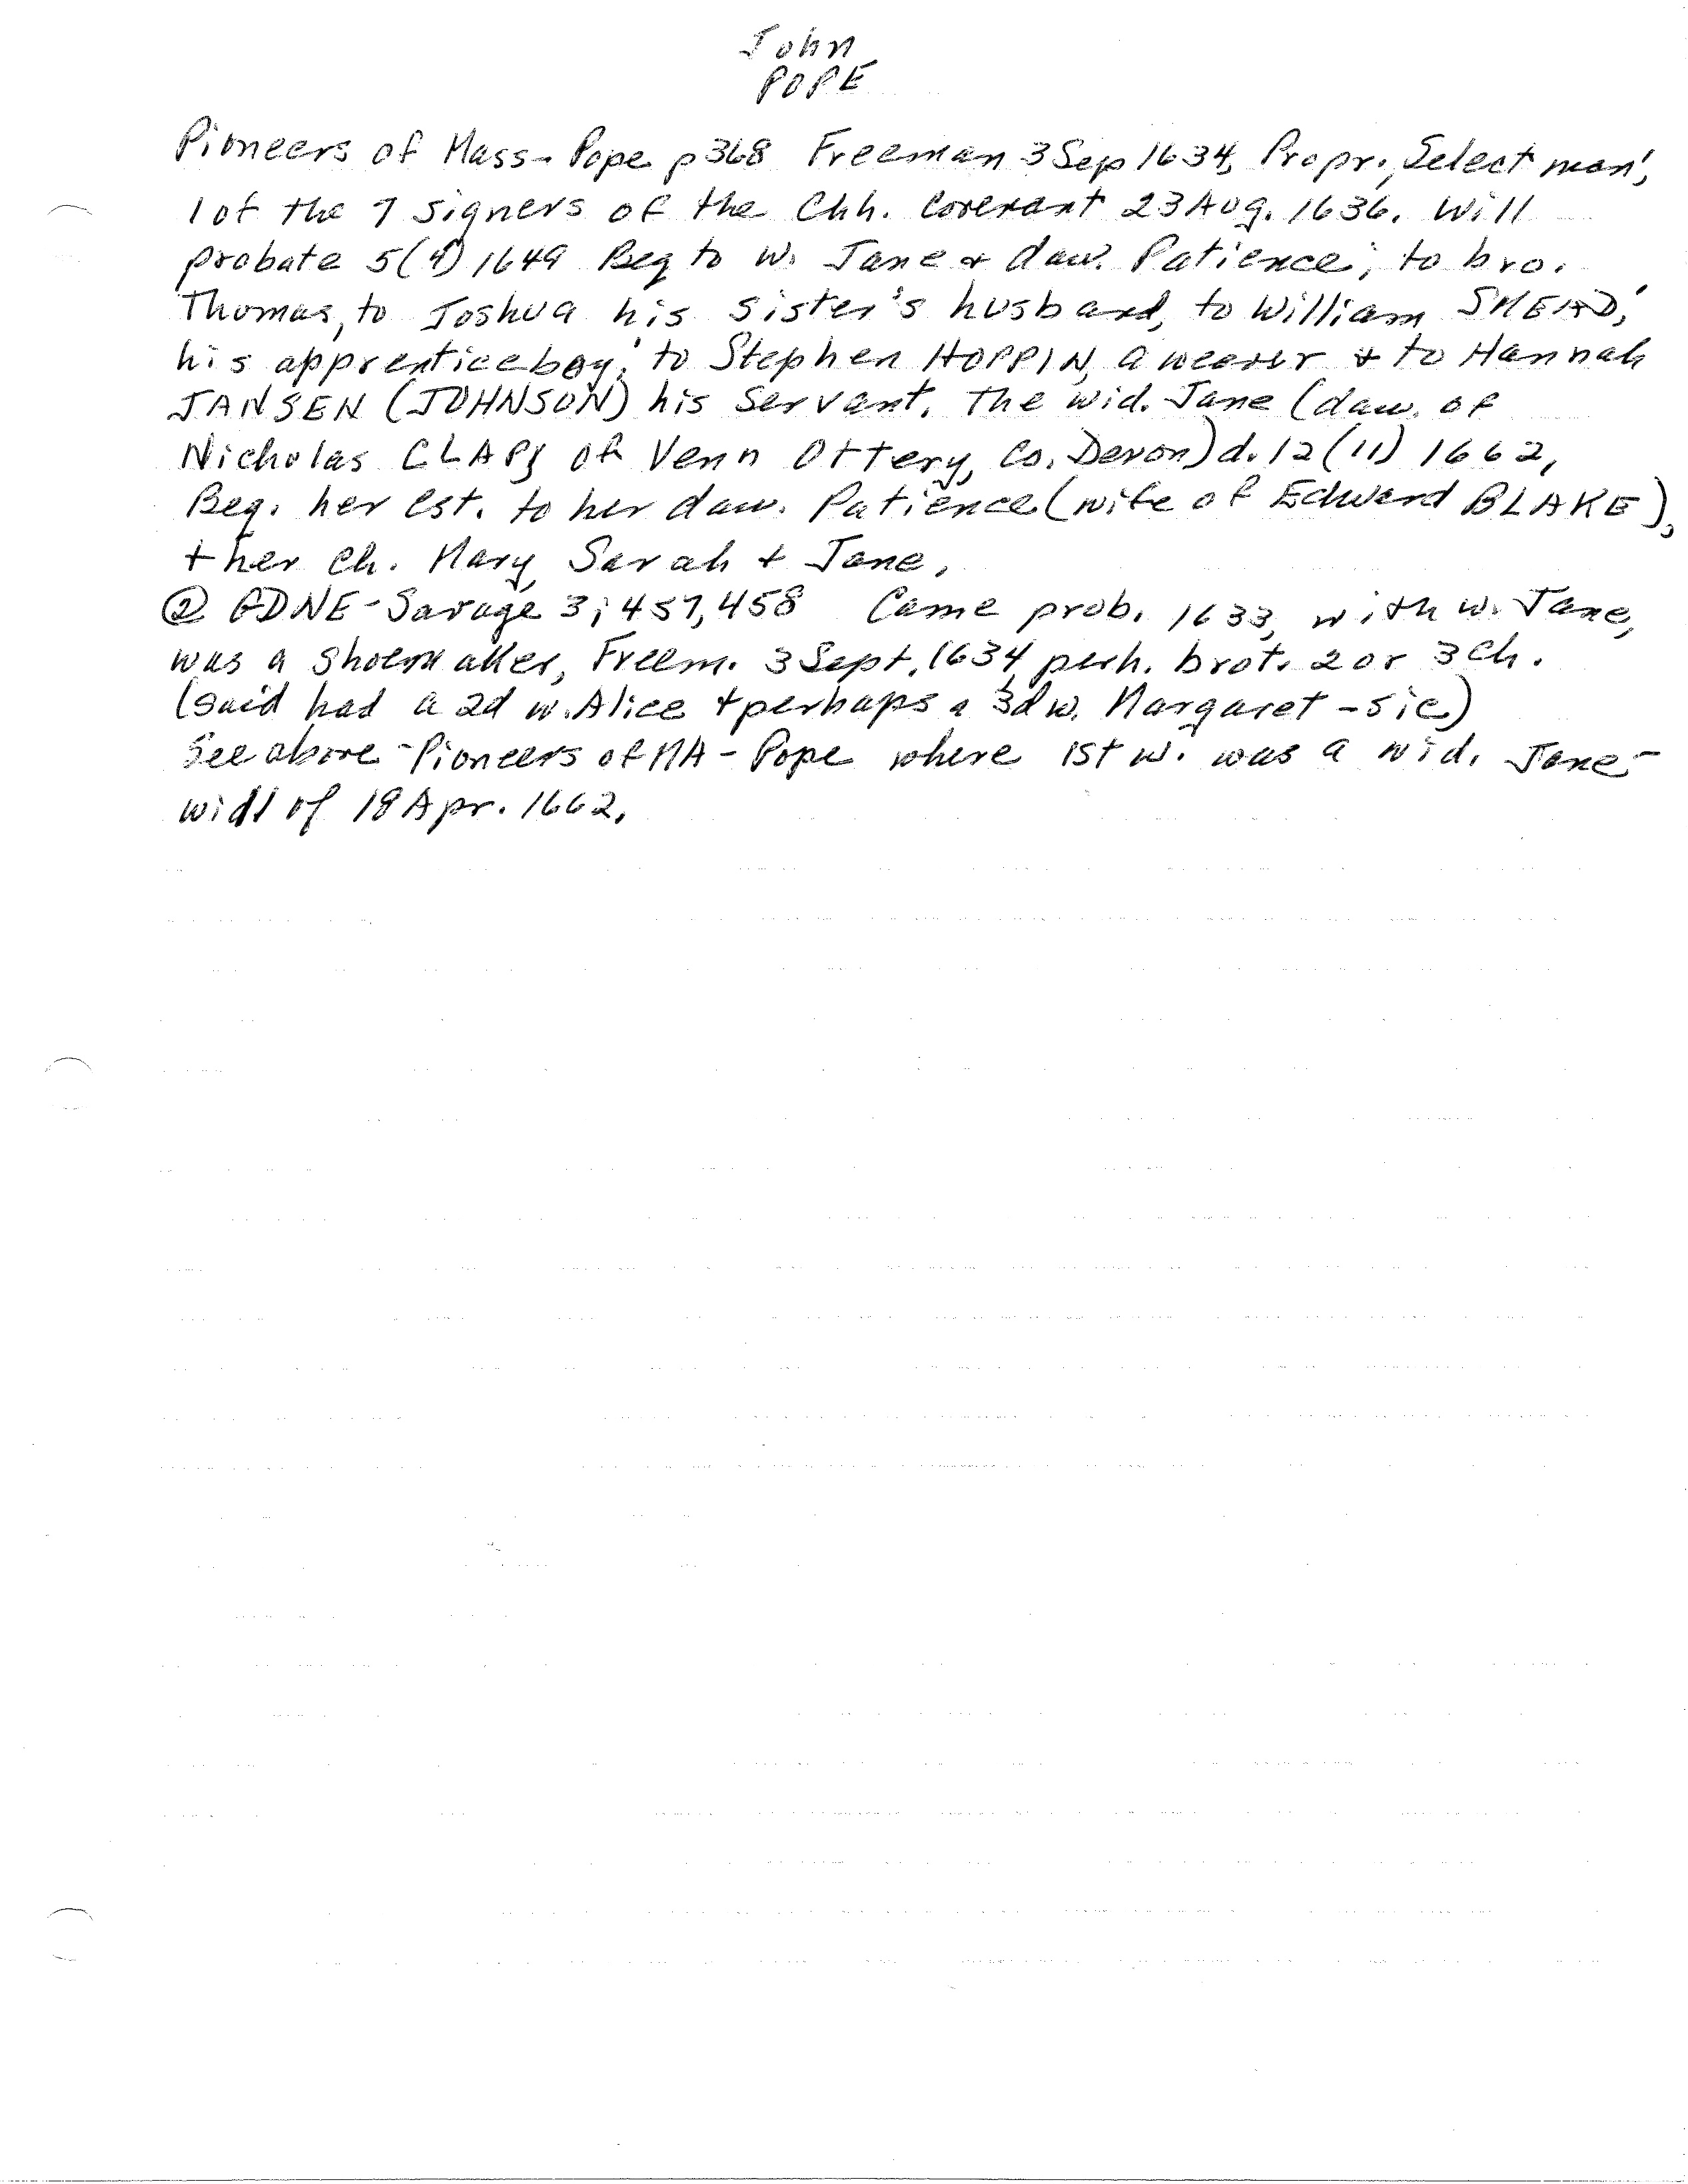 John
POPE
Pioneers of Mass- Pope p368 Freeman 3 Sep 1634, Propr., Select man;
1 of the 7 signers of the Chh. Covenant 23 Aug. 1636. Will
probate 5(4) 1649 Beq to w. Jane & daw. Patience; to bro.
Thomas, to Joshua his sister's husband, to William SMEAD,
his apprentice boy; to Stephen HOPPIN, a weaver & to Hannah
JANSEN (JOHNSON) his servant. The wid. Jane (daw. of
Nicholas CLAPP of Venn Ottery, Co. Devon) d. 12 (11) 1662,
Beq. her est. to her daw. Patience (wife of Edward BLAKE),
+ her ch. Mary, Sarah + Jane.
② GDNE - Savage 3; 457, 458 Came prob. 1633, with w. Jane,
was a shoemaker, Freem. 3 Sept. 1634, perh. brot. 2 or 3 ch.
(said had a 2d w. Alice + perhaps a 3d w. Margaret - sic)
See above - Pioneers of MA - Pope where 1st w. was a wid. Jane -
will of 18 Apr. 1662.